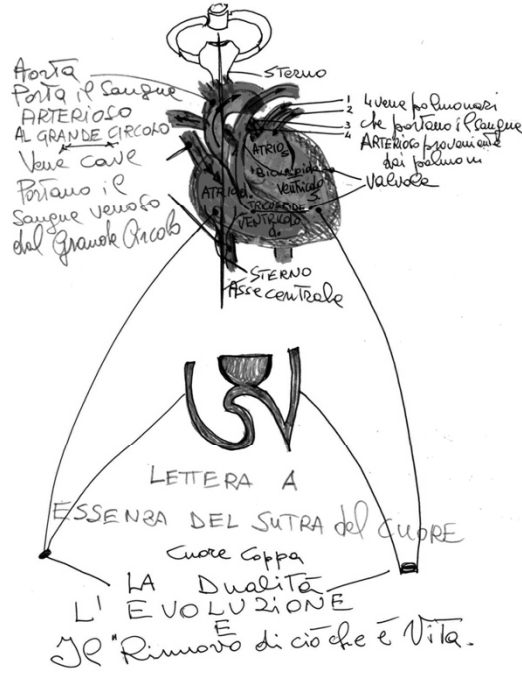 Aorta
Porta il Sangue
ARTERIOSO
AL GRANDE CIRCOLO
Vene cave
Portano il
Sangue venoso
dal Grande Circolo
STERNO
1
2
3
4
4 vene polmonari
che portano il sangue
ARTERIOSO proveniente
dai polmoni
Valvole
ATRIO s.
Bicuspide
Ventricolo
S.
ATRIO d.
TRICUSPIDE
VENTRICOLO
d.
STERNO
Asse centrale
LETTERA A
ESSENZA DEL SUTRA del CUORE
Cuore Coppa
LA Dualità
L'EVOLUZIONE
E
Il "Rinnovo di ciò che è Vita.